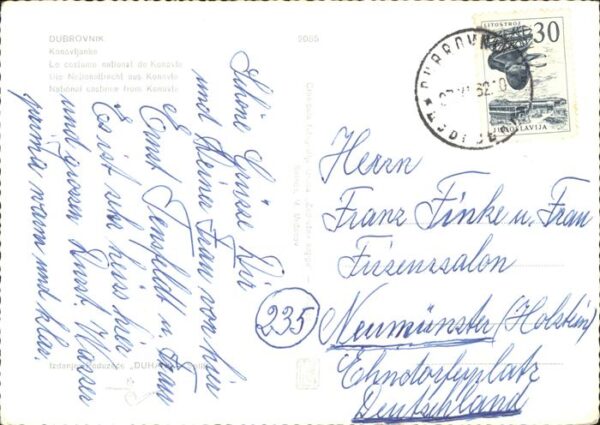 DUBROVNIK
Konavljanke
Le costume national de Konavle
Die Nationaltracht aus Konavle
National costume from Konavle
9085
Schöne Grüsse Dir
und Deine Frau von hier
Ernst Fensfeldt u. Frau
Es ist sehr heiss hier
und grossen Durst. Wasser
prima warm und klar.
Izdanje "DUHA
LITOSTROJ
30
JUGOSLAVIJA
DUBROVN
62
Herrn
Franz Finke u. Frau
Friseursalon
235
Neumünster (Holstein)
Ehndorferplatz
Deutschland